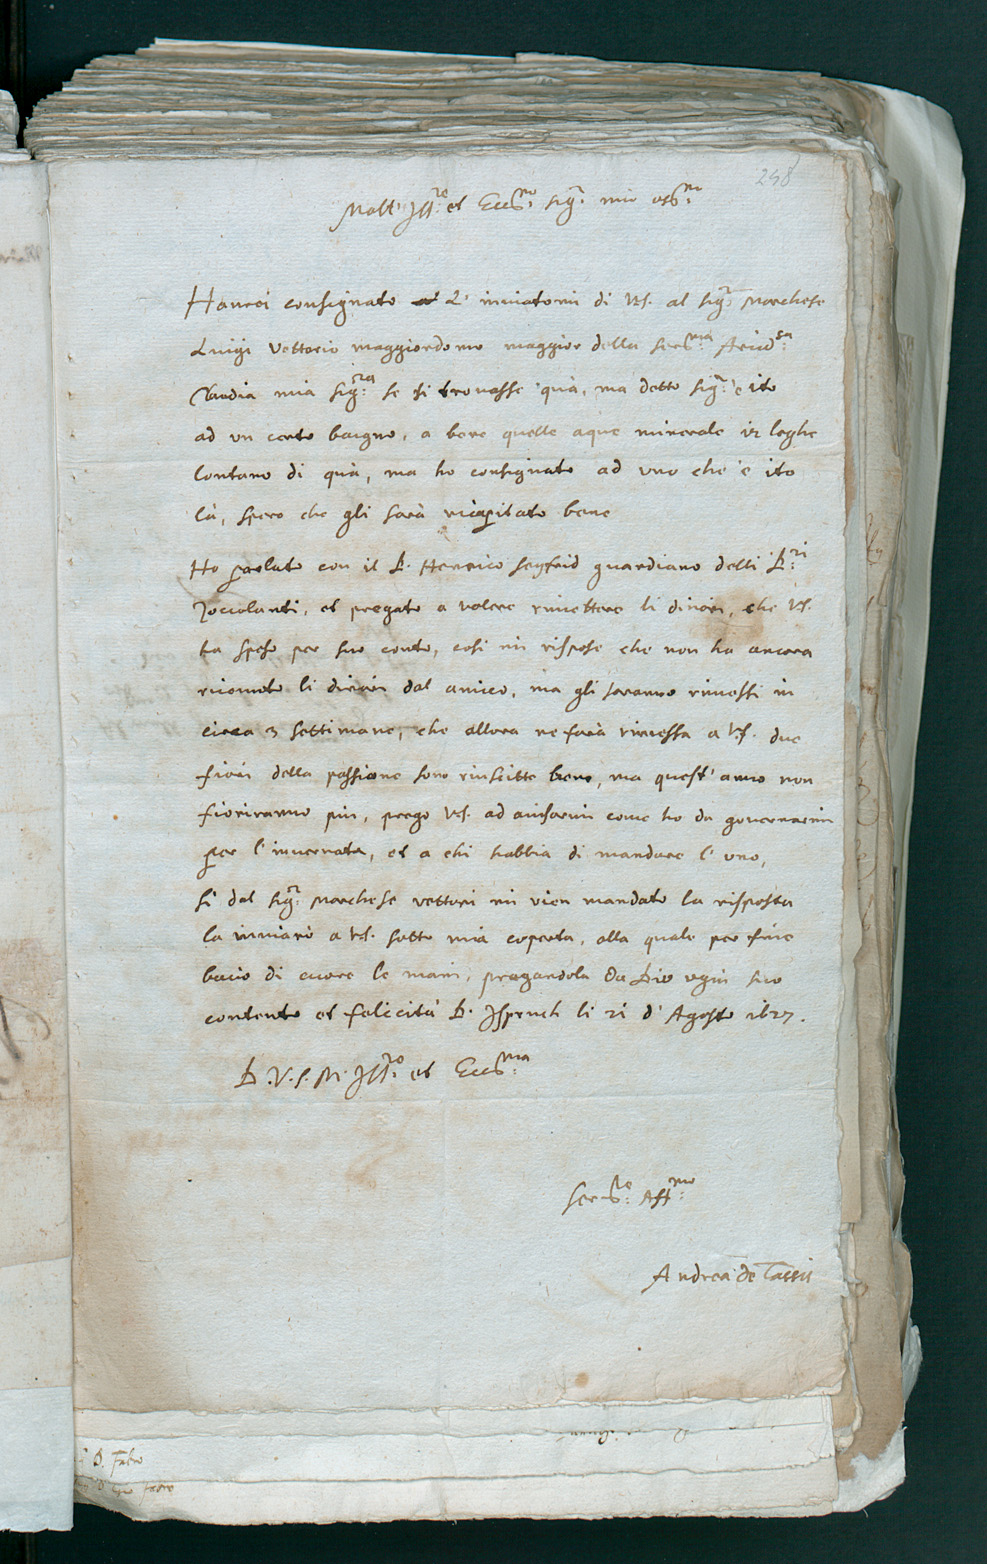 258
Molt' Ill.re et Ecc.mo sig.r mio oss.mo
Haurei consignato L' inviatomi di VS. al sig.r Marchese
Luigi Vettorio maggiordomo maggior della Ser.ma Arcid.sa
Claudia mia sig.ra se si trovasse quà, ma detto sig.r è ito
ad un certo bagno, a bere quelle aque minerale 12 leghe
lontano di quà, ma ho consignato ad uno che è ito
là, spero che gli sarà ricapitato bene
Ho parlato con il P. Henrico Seyfrid guardiano delli P.ri
Zoccolanti, et pregato a volere rimettere li dinari, che VS.
ha speso per suo conto, cosi mi rispose che non ha ancora
ricevuto li dinari dal amico, ma gli saranno rimessi in
circa 3 settimane, che allora ne farà rimessa a VS. due
fiori della passione sono riuscitte bene, ma quest' anno non
fioriranno piu, prego VS. ad avisarmi come ho da governarmi
per l' invernata, et a chi habbia di mandare l' uno,
Si dal sig.r Marchese Vettori mi vien mandato la risposta
la inviarò a VS. sotto mia coperta, alla quale per fine
bacio di cuore le mani, pregandola da Dio ogni suo
contento et felicità D. Ispruch li 21 d' Agosto 1627.
D. V. S. M. Ill.re et Ecc.ma
Ser.re Aff.mo
Andrea de Tassis
D. Fabro
fabro